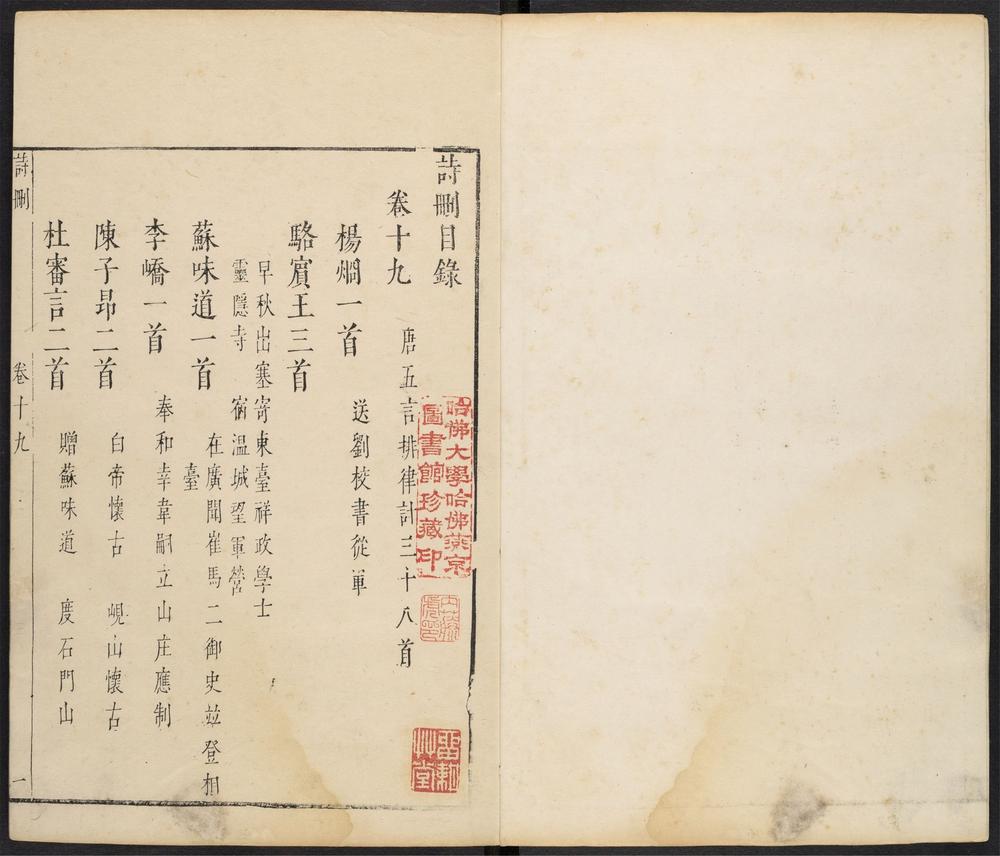 詩刪目錄
卷十九　唐五言排律計三十八首
楊烱一首　送劉校書從軍
駱賓王三首
早秋出塞寄東臺祥政學士
靈隱寺　宿溫城望軍營
蘇味道一首　在廣聞崔馬二御史並登相
臺
李嶠一首　奉和幸韋嗣立山庄應制
陳子昂二首　白帝懷古　峴山懷古
杜審言二首　贈蘇味道　度石門山
詩刪　卷十九　一
哈佛大學哈佛燕京
圖書館珍藏印
艸堂